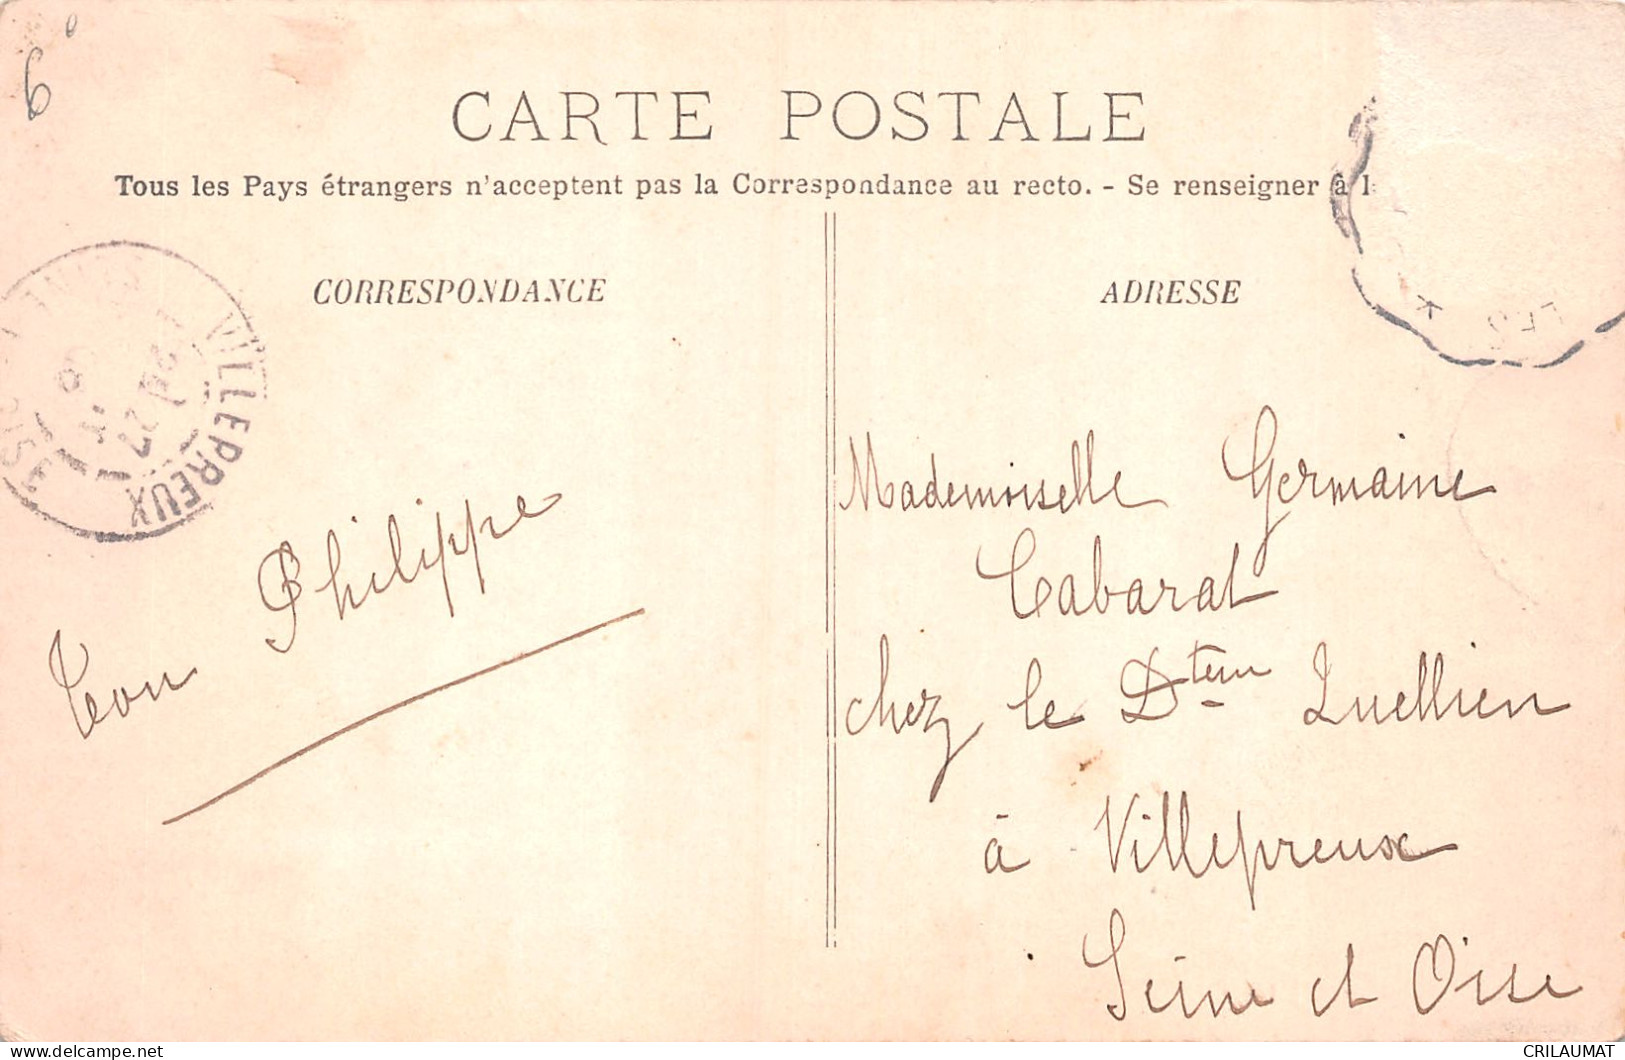 6
CARTE POSTALE
Tous les Pays étrangers n'acceptent pas la Correspondance au recto. - Se renseigner à l
CORRESPONDANCE
ADRESSE
VILLEPREUX
27
Léon Philippe
Mademoiselle Germaine
Cabarat
chez le Dtem Quellien
à Villepreux
Seine et Oise
CRILAUMAT